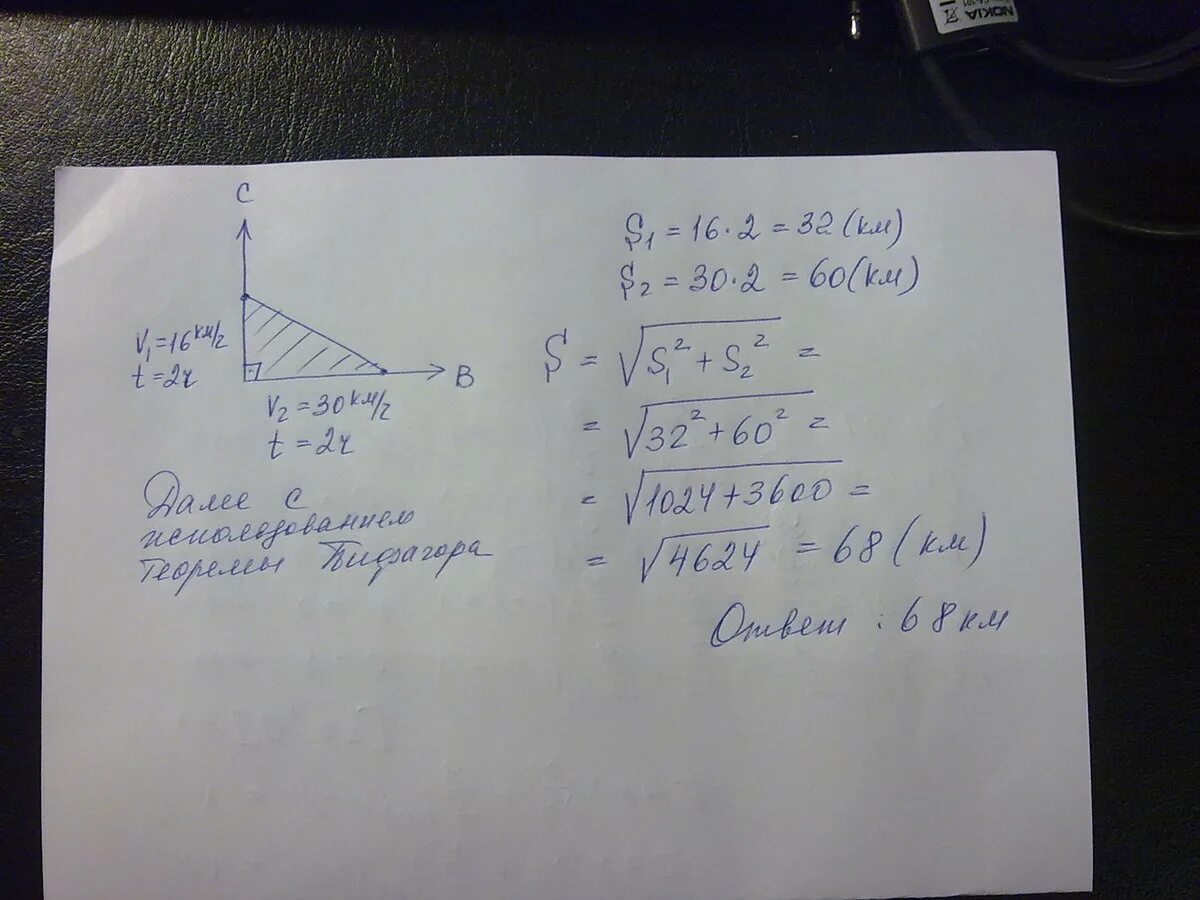 NOKIA
С
V₁=16 км/г
t=2ч
В
V₂=30 км/г
t=2ч
Далее с
использованием
теоремы Пифагора
S₁ = 16·2 = 32 (км)
S₂ = 30·2 = 60 (км)
S = √(S₁² + S₂²) =
= √(32² + 60²) =
= √(1024 + 3600) =
= √4624 = 68 (км)
Ответ : 68 км